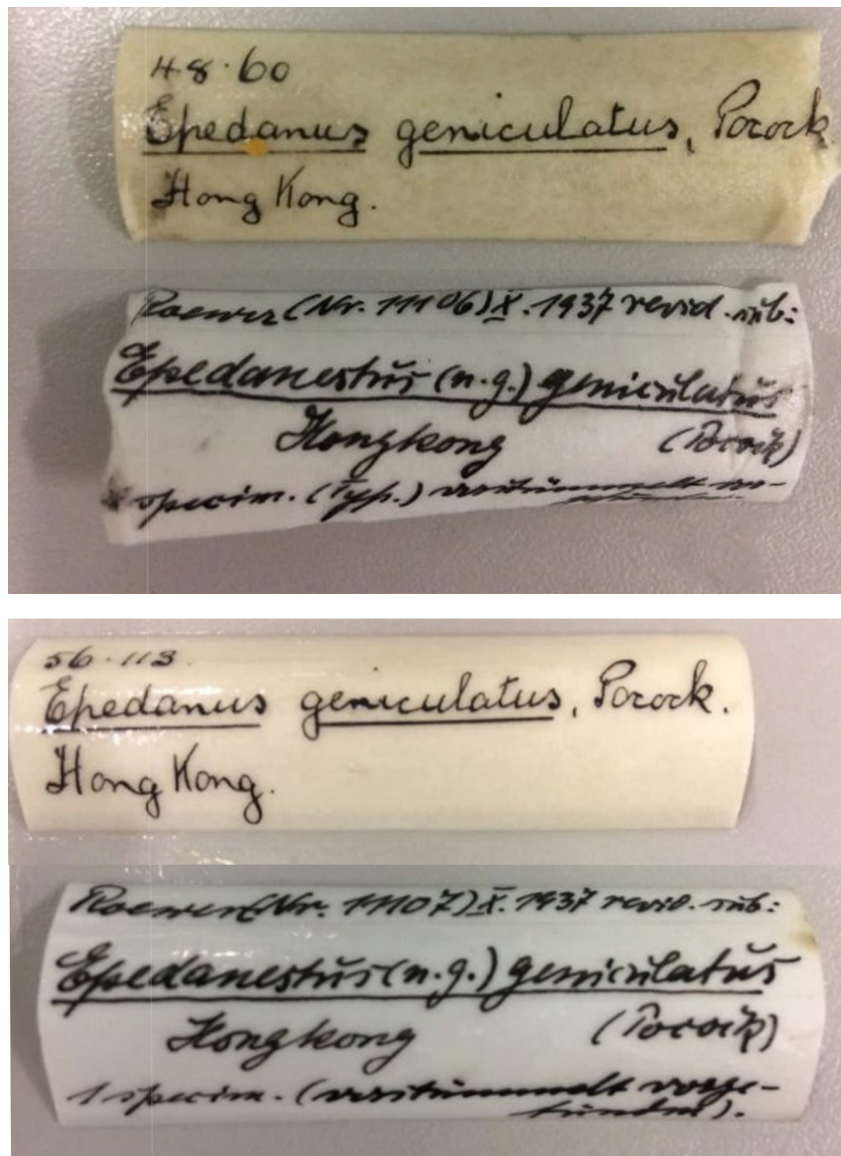 48.60
Epedanus geniculatus, Pocock
Hong Kong.
Roewer (Nr. 11106) X. 1937 revid. sub:
Epedanestus (n.g.) geniculatus
Hongkong (Pocock)
specim. (Typ.) verstümmelt
56.113.
Epedanus geniculatus, Pocock.
Hong Kong.
Roewer (Nr. 11107) X. 1937 revid. sub:
Epedanestus (n.g.) geniculatus
Hongkong (Pocock)
1 specim. (verstümmelt vorge-
funden).